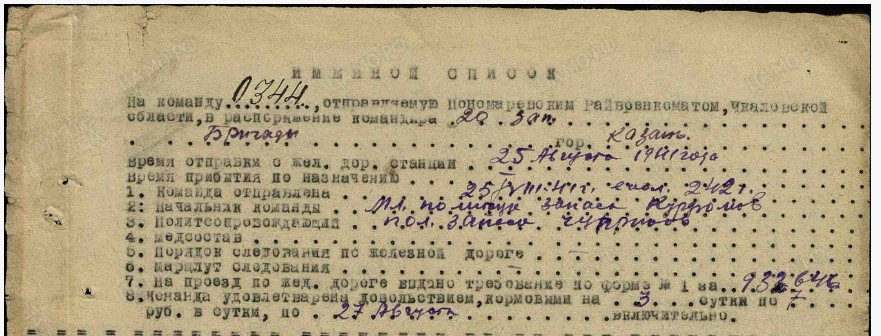 ИМЕННОЙ СПИСОК
На команду 0344, отправляемую Пономаревским Райвоенкоматом, Чкаловской
области, в распоряжение командира 20 зап.
Бригады гор. Казань.
Время отправки с жел. дор. станции 25 Августа 1941 года
Время прибытия по назначению
1. Команда отправлена 25/VIII-41г. 242г.
2. Начальник команды Мл. политрук запаса
3. Политсопровождающий пол. запаса
4. медсостав
5. Порядок следования по железной дороге —
6. маршлут следования —
7. На проезд по жед. дороге выдано требование по форме № 1 за
8. Команда удовлетварена довольствием, кормовыми на 3 сутки по 7
руб. в сутки, по 27 Августа включительно.